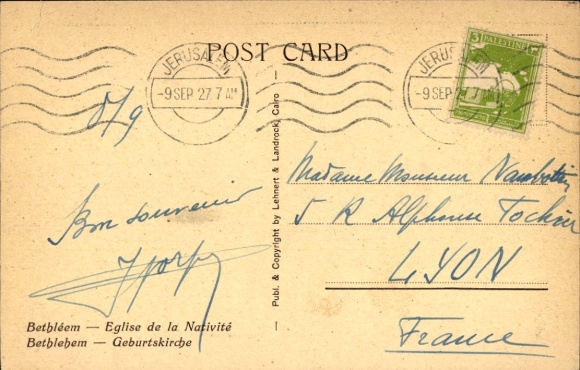 POST CARD
JERUSALEM
-9 SEP. 27. 7 AM
JERUSALEM
-9 SEP. 27. 7 AM
3 PALESTINE
8/9
Bon souvenir
Publ. & Copyright by Lehnert & Landrock, Cairo
Madame Monsieur
5 R Alphonse
LYON
France
Bethléem — Eglise de la Nativité
Bethlehem — Geburtskirche